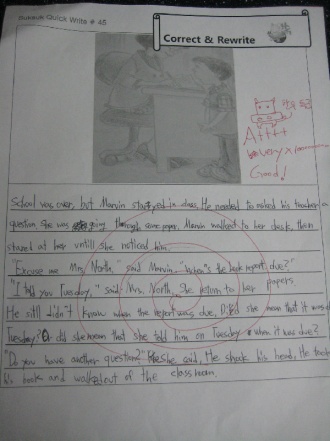 Quick Write # 45
Correct & Rewrite
A++++
very
Good!
School was over, but Marvin stayed in class. He needed to asked his teacher a
question. She was going through some paper. Marvin walked to her desk, then
stared at her untill she noticed him.
"Excuse me Mrs. North," said Marvin. "When's the book report due?"
"I told you Tuesday," said Mrs. North. She return to her papers.
He still didn't know when the report was due. Did she mean that it was due
Tuesday? Or did she mean that she told him on Tuesday when it was due?
"Do you have another question?" She said. He shook his head. He took
his book and walked out of the classroom.